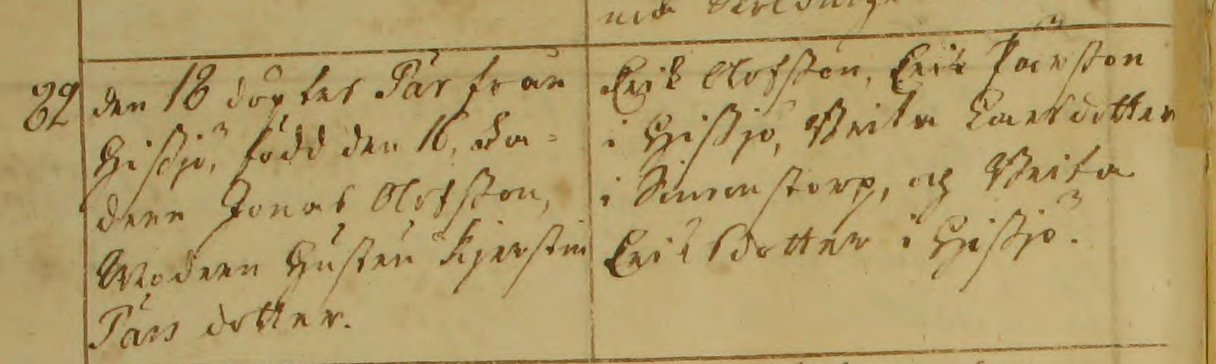 82
den 18 döptes Pär från
Hissjö, född den 16, Fa-
dren Jonas Olofsson,
Modren Hustru Kjerstin
Pärs dotter.
Erik Olofsson, Erik Pärsson
i Hissjö, Brita Larsdotter
i Simonstorp, och Brita
Eriksdotter i Hissjö.